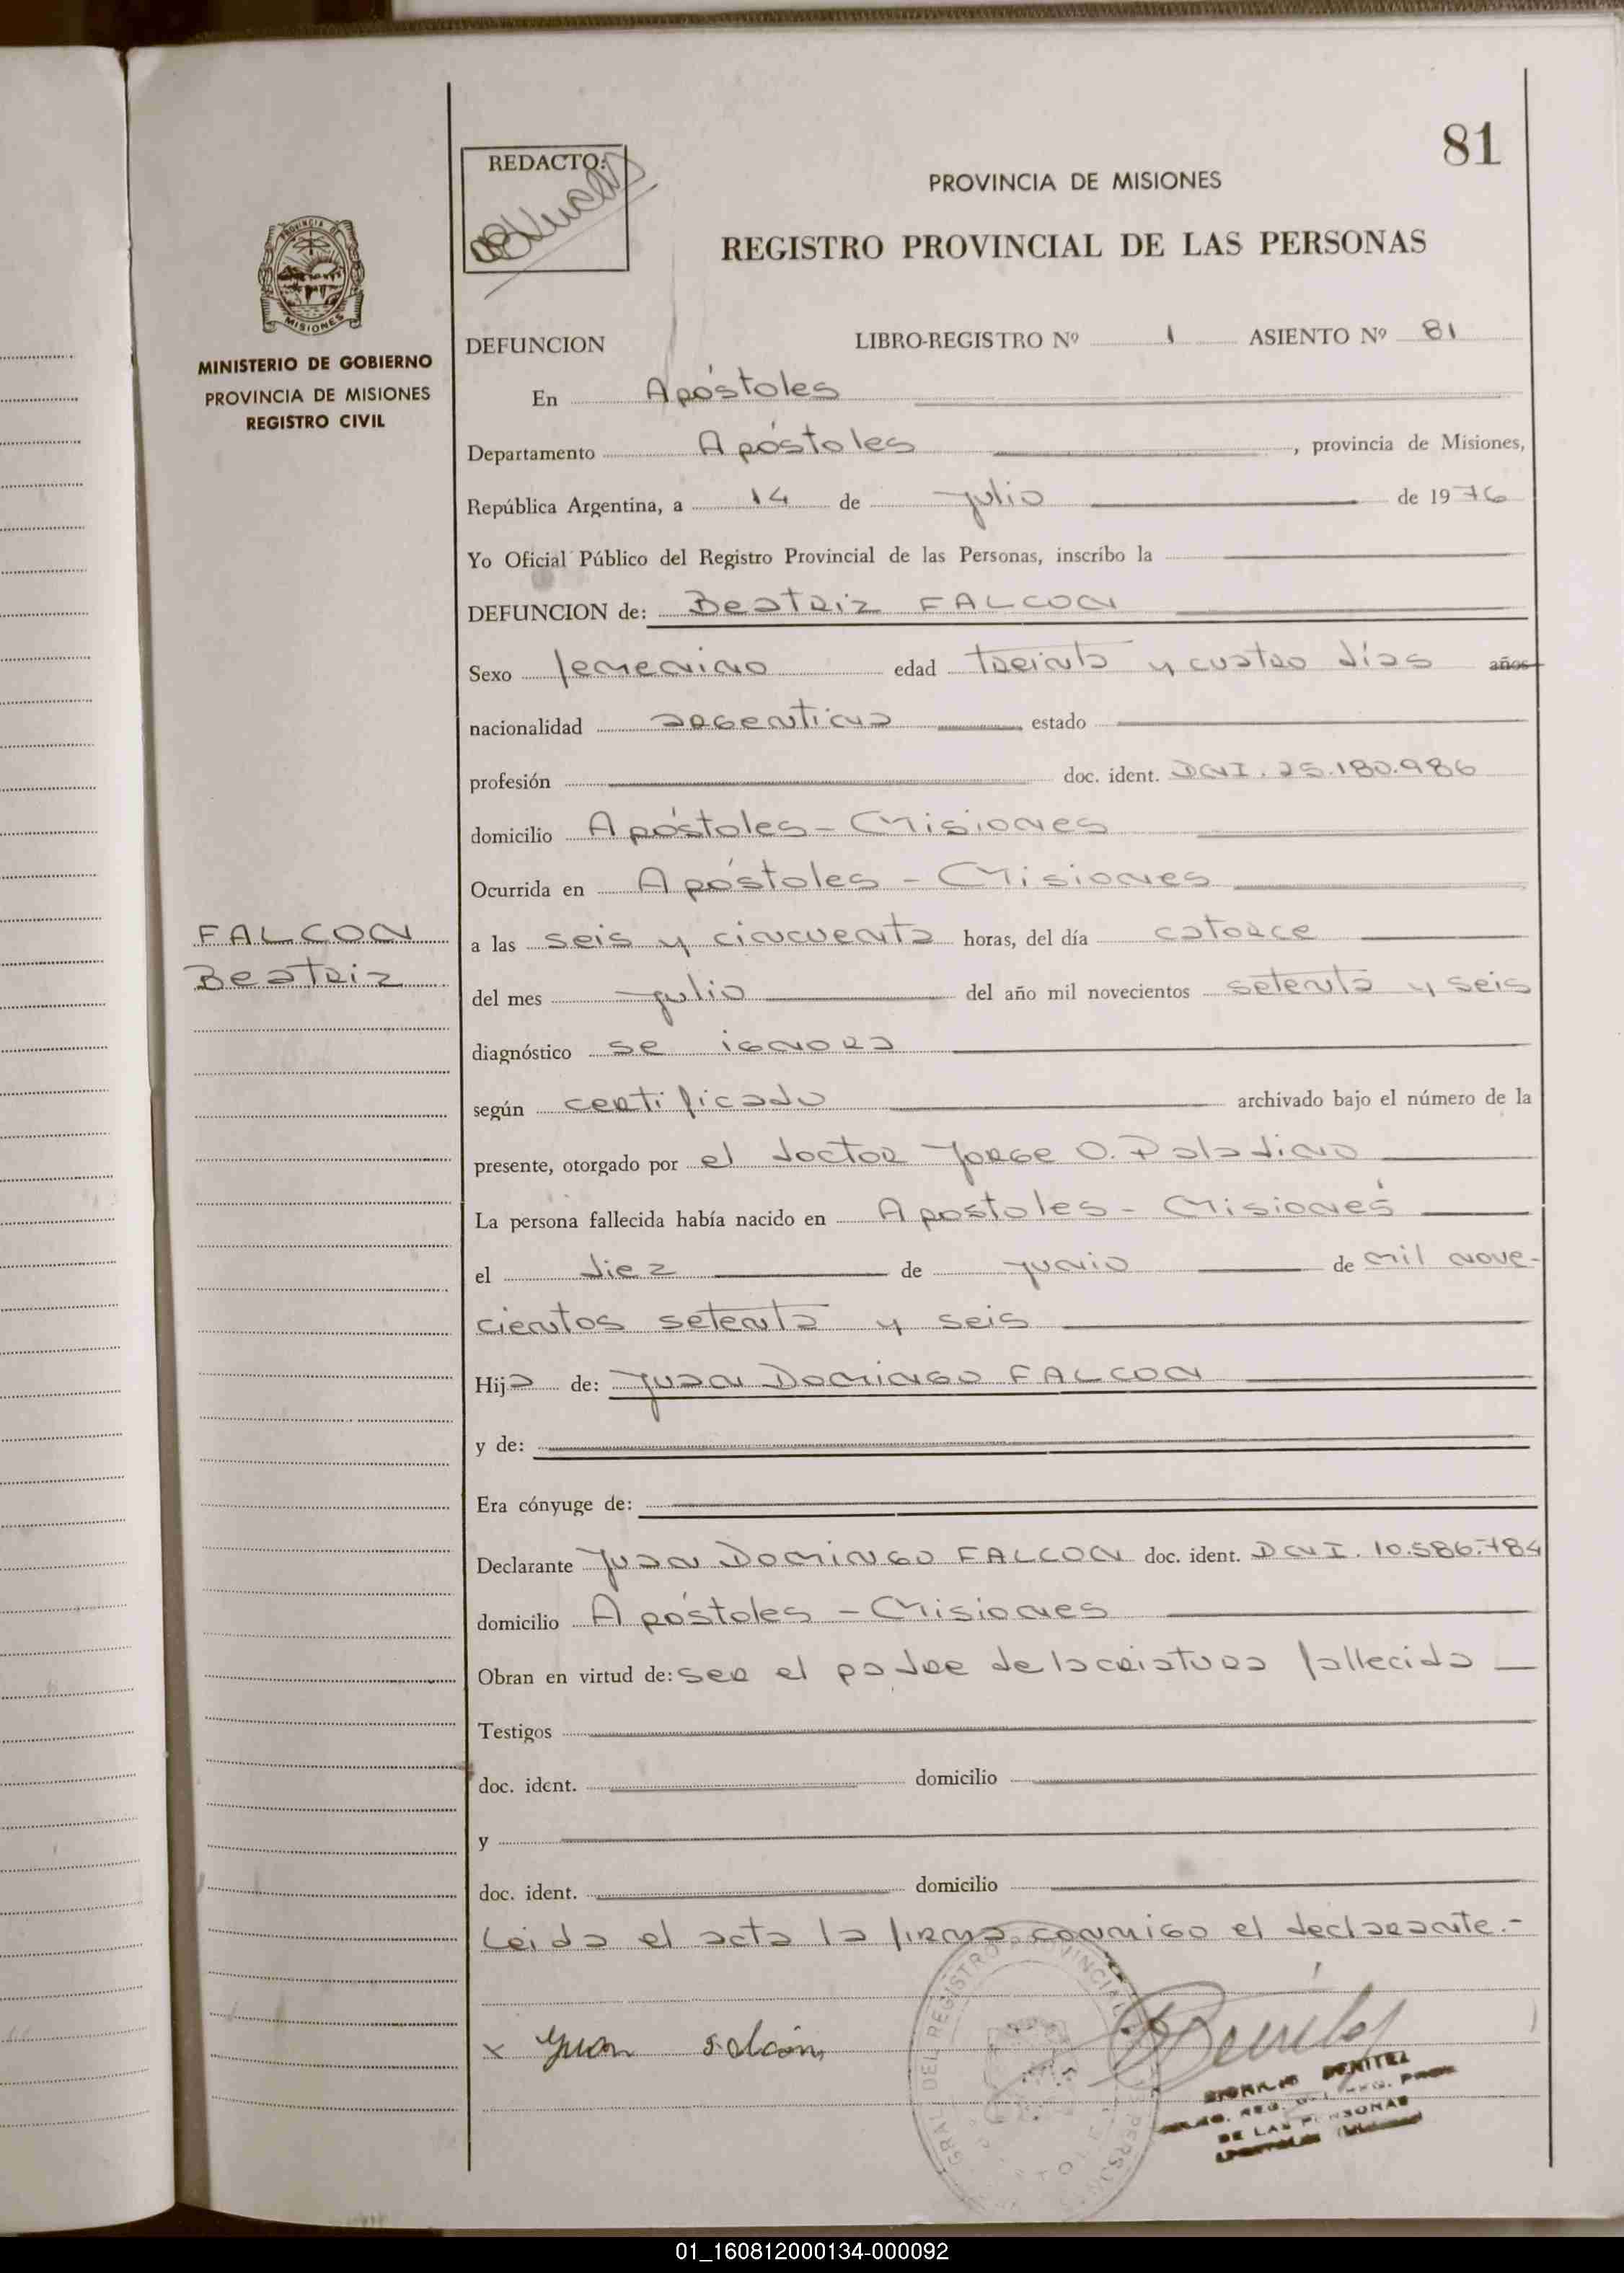 81
REDACTO:
PROVINCIA DE MISIONES
REGISTRO PROVINCIAL DE LAS PERSONAS
MISIONES
MINISTERIO DE GOBIERNO
PROVINCIA DE MISIONES
REGISTRO CIVIL
DEFUNCION LIBRO-REGISTRO Nº 1 ASIENTO Nº 81
En Apóstoles
Departamento Apóstoles, provincia de Misiones,
República Argentina, a 14 de julio de 1976
Yo Oficial Público del Registro Provincial de las Personas, inscribo la
DEFUNCION de: Beatriz FALCON
Sexo femenino edad treinta y cuatro días años
nacionalidad argentina estado
profesión doc. ident. DNI. 25.180.986
domicilio Apóstoles - Misiones
Ocurrida en Apóstoles - Misiones
FALCON
Beatriz
a las seis y cincuenta horas, del día catorce
del mes julio del año mil novecientos setenta y seis
diagnóstico se ignora
según certificado archivado bajo el número de la
presente, otorgado por el doctor Jorge O. Paladino
La persona fallecida había nacido en Apostoles - Misiones
el diez de junio de mil nove-
cientos setenta y seis
Hija de: Juan Domingo FALCON
y de:
Era cónyuge de:
Declarante Juan Domingo FALCON doc. ident. DNI. 10.586.784
domicilio Apóstoles - Misiones
Obran en virtud de: ser el padre de la criatura fallecida
Testigos
doc. ident. domicilio
y
doc. ident. domicilio
Leida el acta la firma conmigo el declarante.-
x Juan Falcón
BENITEZ
DE LAS PERSONAS